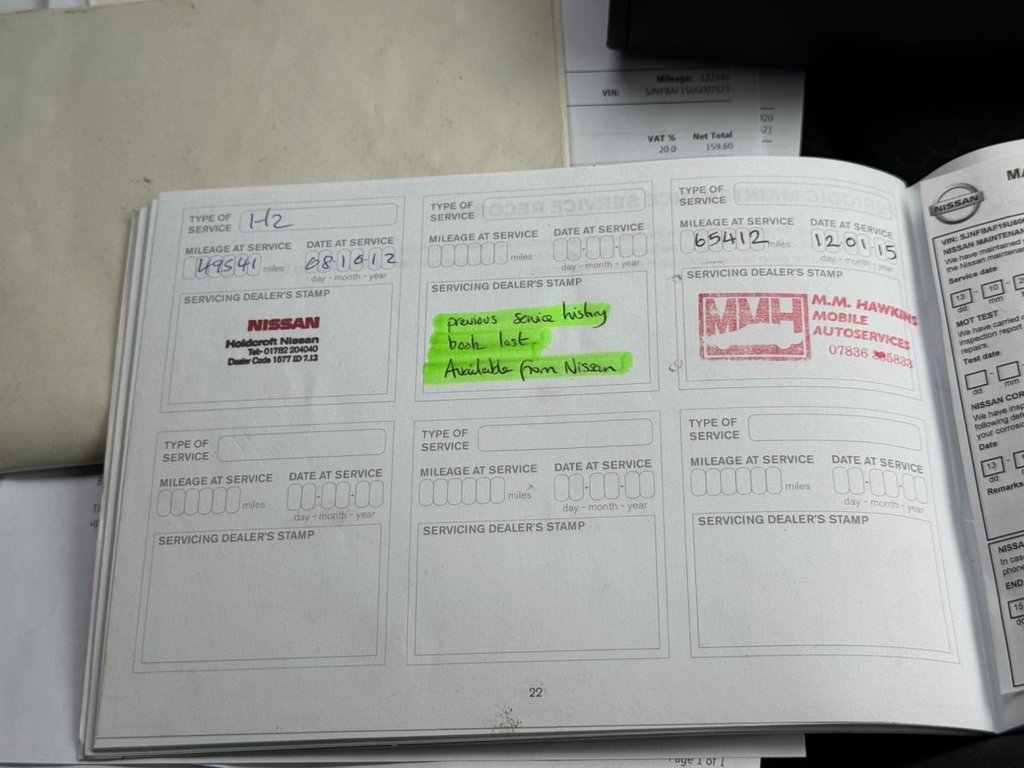 Mileage: 122346
VIN: SJNFBAF15U6607621
VAT % Net Total
20.0 159.60
TYPE OF SERVICE H2
MILEAGE AT SERVICE DATE AT SERVICE
49541 miles 08 10 12
day - month - year
SERVICING DEALER'S STAMP
NISSAN
Holdcroft Nissan
Tel- 01782 204040
Dealer Code 1577 ID 7.12
TYPE OF SERVICE
MILEAGE AT SERVICE DATE AT SERVICE
miles
day - month - year
SERVICING DEALER'S STAMP
previous service history
book lost
Available from Nissan
TYPE OF SERVICE
MILEAGE AT SERVICE DATE AT SERVICE
65412 miles 12 01 15
day - month - year
SERVICING DEALER'S STAMP
MMH
M.M. HAWKINS
MOBILE
AUTOSERVICES
07836
TYPE OF SERVICE
MILEAGE AT SERVICE DATE AT SERVICE
miles
day - month - year
SERVICING DEALER'S STAMP
TYPE OF SERVICE
MILEAGE AT SERVICE DATE AT SERVICE
miles
day - month - year
SERVICING DEALER'S STAMP
TYPE OF SERVICE
MILEAGE AT SERVICE DATE AT SERVICE
miles
day - month - year
SERVICING DEALER'S STAMP
22
NISSAN
MA
VIN: SJNFBAF15U60
NISSAN MAINTENAN
We have maintained
the Nissan maintenan
Service date
13 - 10 - 2
dd mm
MOT TEST
We have carried
inspection report
repairs.
Test date
dd mm
NISSAN COR
We have insp
following def
your corrosi
Date
13 - 1
dd
Remarks
NISSA
In cas
phone
END
15
dd
Page 1 of 1